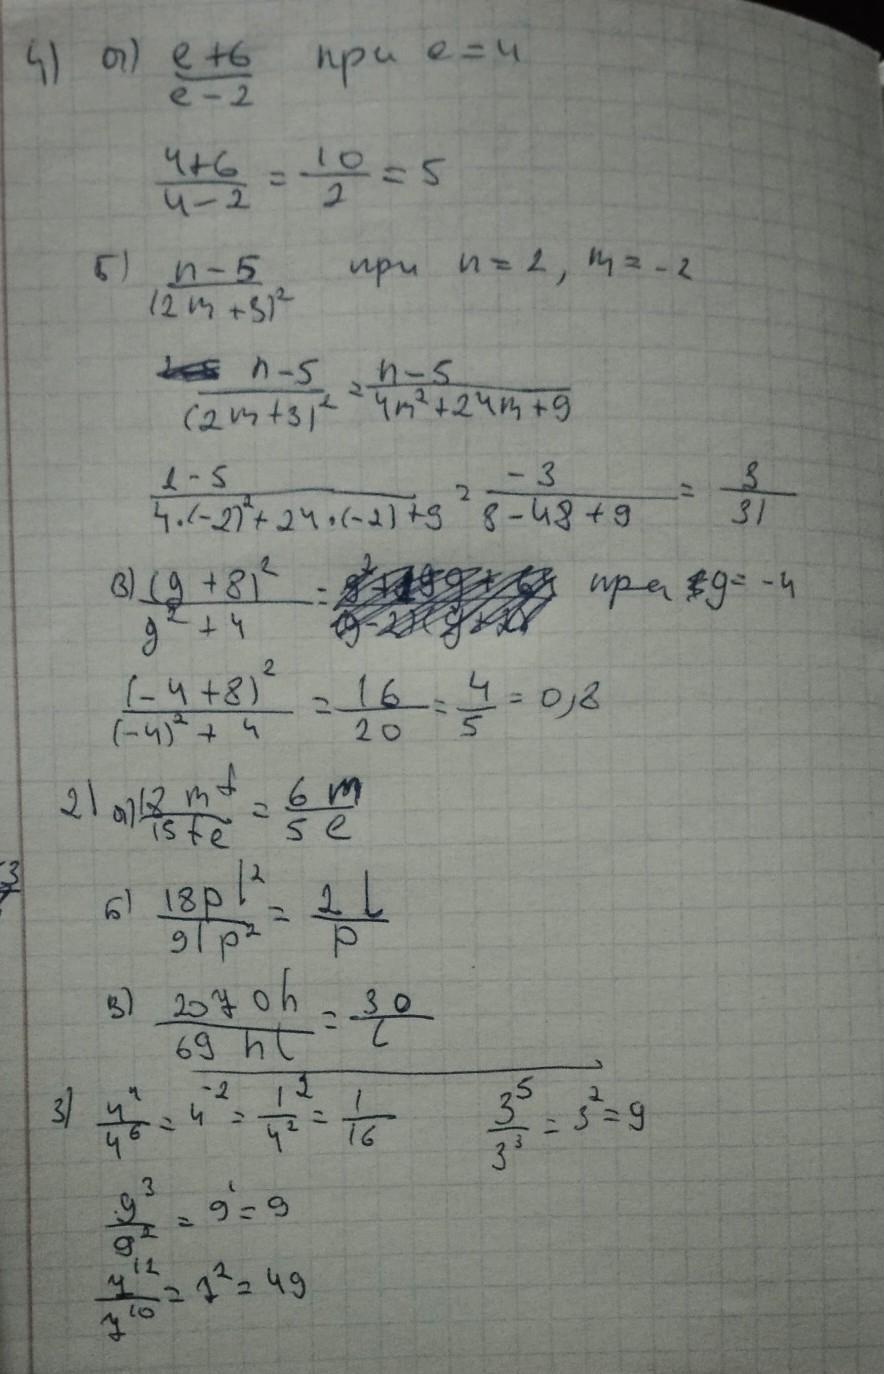 4) а) (e+6)/(e-2) при e=4
(4+6)/(4-2) = 10/2 = 5
б) (n-5)/(2m+3)² при n=2, m=-2
(n-5)/(2m+3)² = (n-5)/(4m²+24m+9)
(2-5)/(4·(-2)²+24·(-2)+9) = -3/(8-48+9) = 3/31
в) (g+8)²/(g²+4) = при g=-4
(-4+8)²/((-4)²+4) = 16/20 = 4/5 = 0,8
2) а) 18mf/15fe = 6m/5e
б) 18pl²/9lp² = 2l/p
в) 207oh/69hl = 3o/l
3) 4⁴/4⁶ = 4⁻² = 1²/4² = 1/16 3⁵/3³ = 3² = 9
9³/9² = 9¹ = 9
7¹²/7¹⁰ = 7² = 49